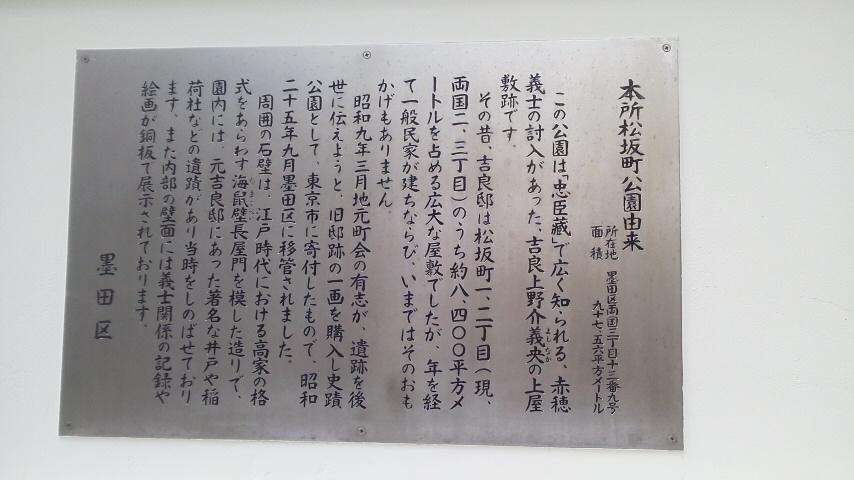 本所松坂町公園由来
所在地 墨田区両国三丁目十三番九号
面積 九十七、五六平方メートル
この公園は「忠臣蔵」で広く知られる、赤穂
義士の討入があった、吉良上野介義央の上屋
よしなか
敷跡です。
その昔、吉良邸は松坂町一、二丁目(現、
両国二、三丁目)のうち約八、四〇〇平方メ
ートルを占める広大な屋敷でしたが、年を経
て一般民家が建ちならび、いまではそのおも
かげもありません。
昭和九年三月地元町会の有志が、遺跡を後
世に伝えようと、旧邸跡の一画を購入し史蹟
公園として、東京市に寄付したもので、昭和
二十五年九月墨田区に移管されました。
周囲の石壁は、江戸時代における高家の格
式をあらわす海鼠壁長屋門を模した造りで、
なまこ
園内には、元吉良邸にあった著名な井戸や稲
荷社などの遺蹟があり当時をしのばせており
ます。また内部の壁面には義士関係の記録や
絵画が銅板で展示されております。
墨田区